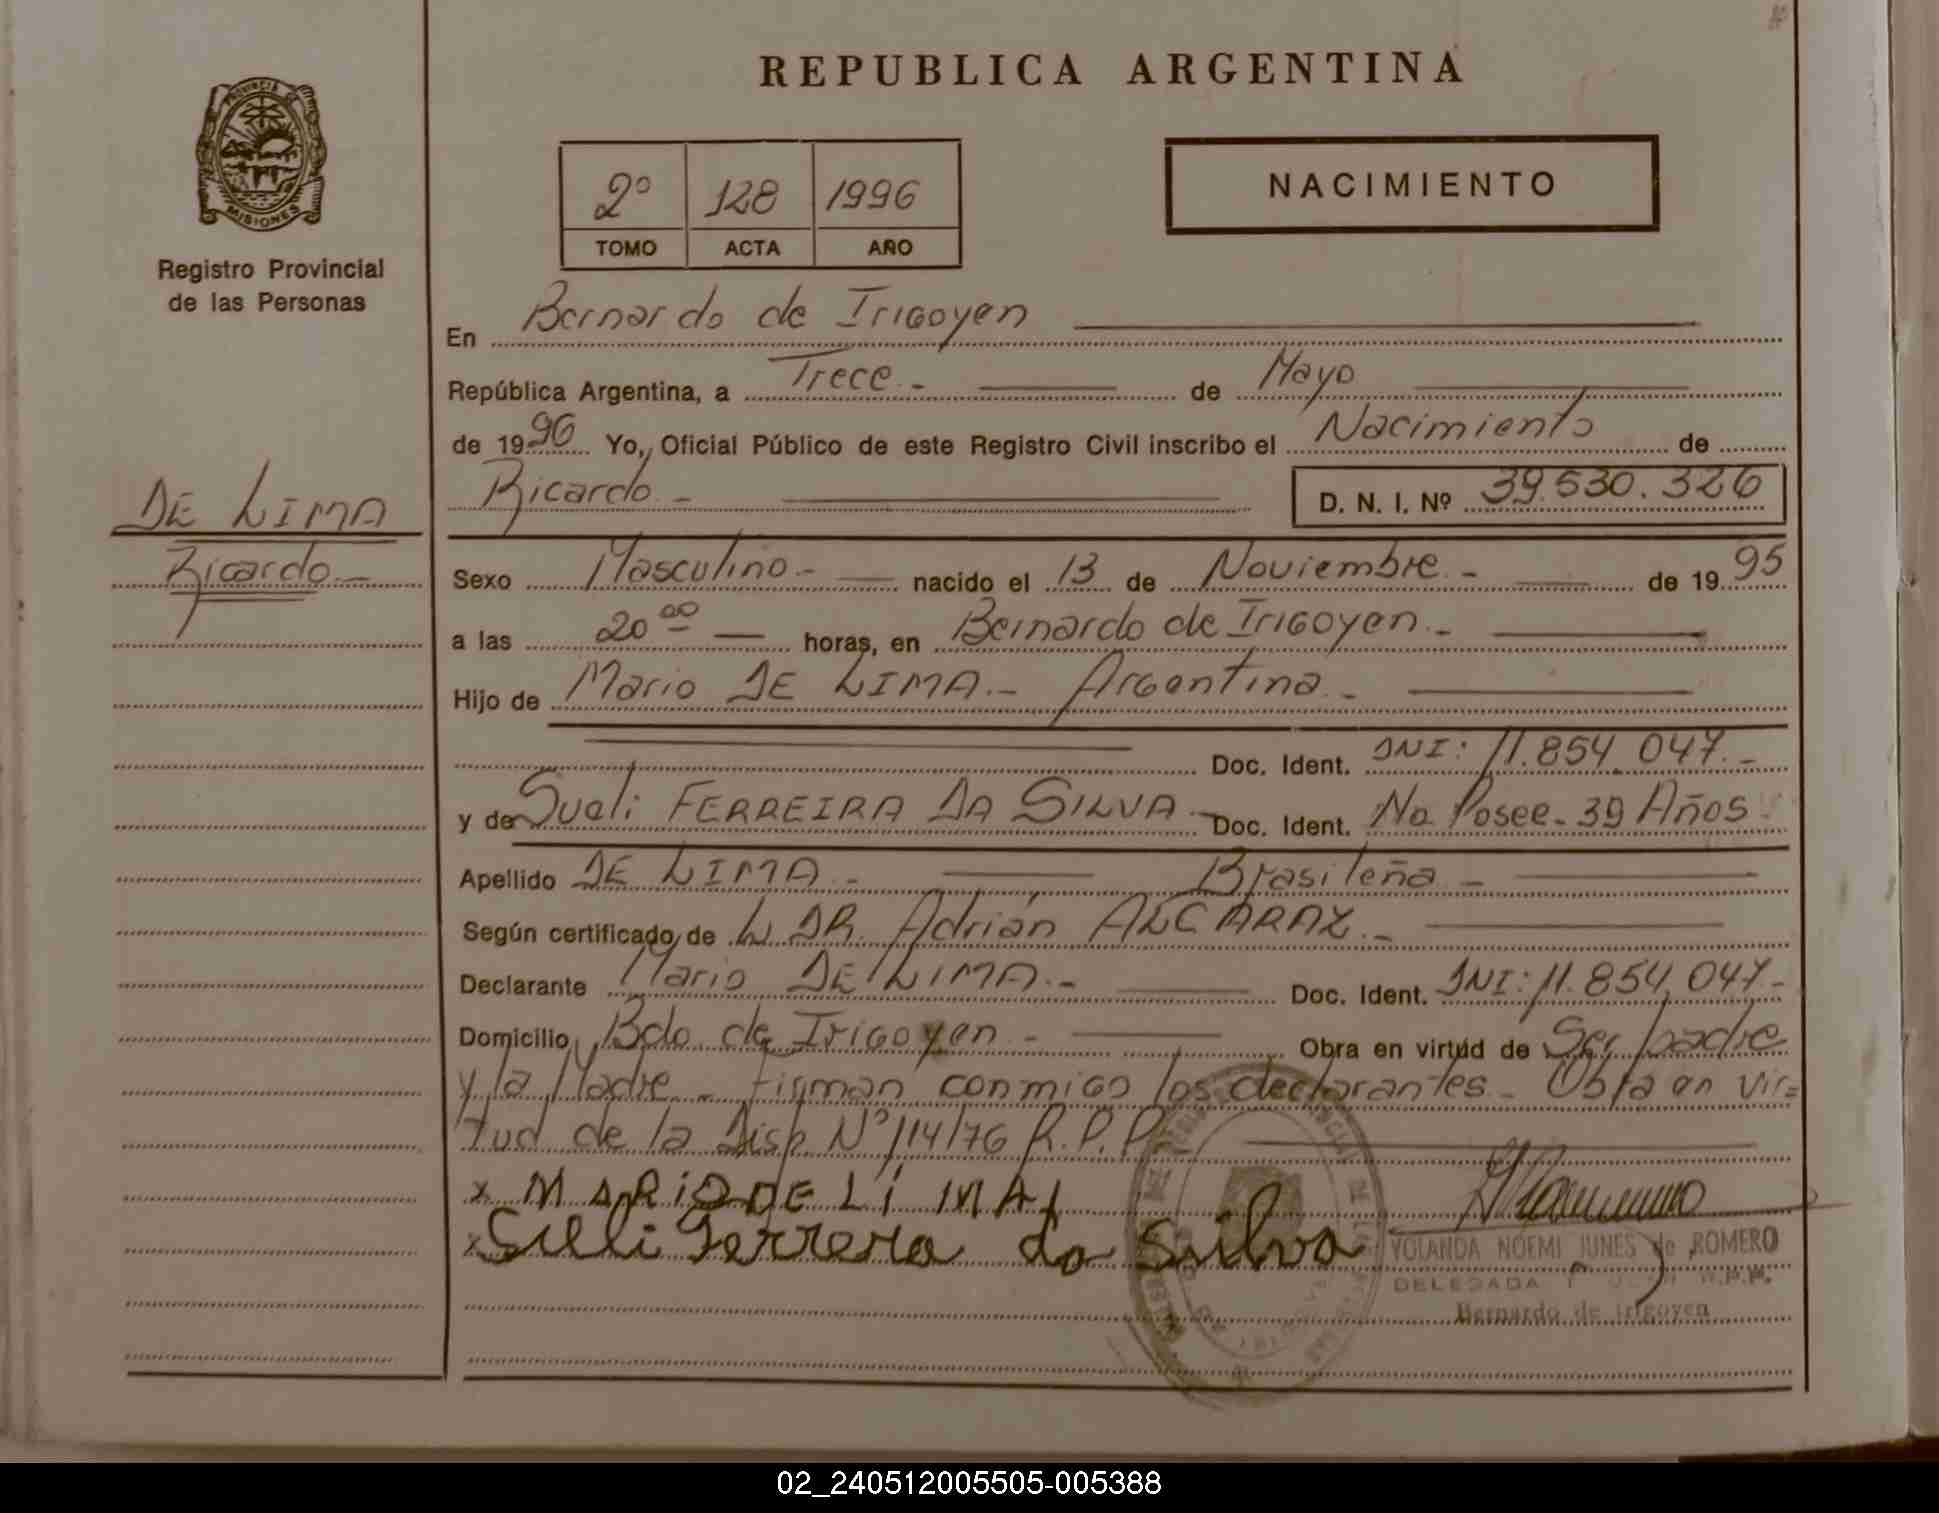 REPUBLICA ARGENTINA
PROVINCIA DE
MISIONES
Registro Provincial
de las Personas
2º 128 1996
TOMO ACTA AÑO
NACIMIENTO
En Bernardo de Irigoyen
República Argentina, a Trece.- de Mayo
de 1996 Yo, Oficial Público de este Registro Civil inscribo el Nacimiento de
Ricardo.- D. N. I. Nº 39.530.326
DE LIMA
Ricardo.-
Sexo Masculino.- nacido el 13 de Noviembre.- de 1995
a las 20 00 horas, en Bernardo de Irigoyen.-
Hijo de Mario DE LIMA.- Argentina.-
Doc. Ident. DNI: 11.854.047.-
y de Sueli FERREIRA DA SILVA.- Doc. Ident. No Posee.- 39 Años
Apellido DE LIMA.- Brasileña.-
Según certificado de L DR. Adrián ALCARAZ.-
Declarante Mario DE LIMA.- Doc. Ident. DNI: 11.854.047.-
Domicilio Bdo. de Irigoyen.- Obra en virtud de Ser padre
y la Madre.- Firman conmigo los declarantes.- Obra en vir=
tud de la Disp. Nº 114/76 R.P.P.
x MARIO DE LIMA
x Sueli Ferrera da Silva
YOLANDA NOEMI JUNES de ROMERO
DELEGADA R.P.P.
Bernardo de Irigoyen
02_240512005505-005388